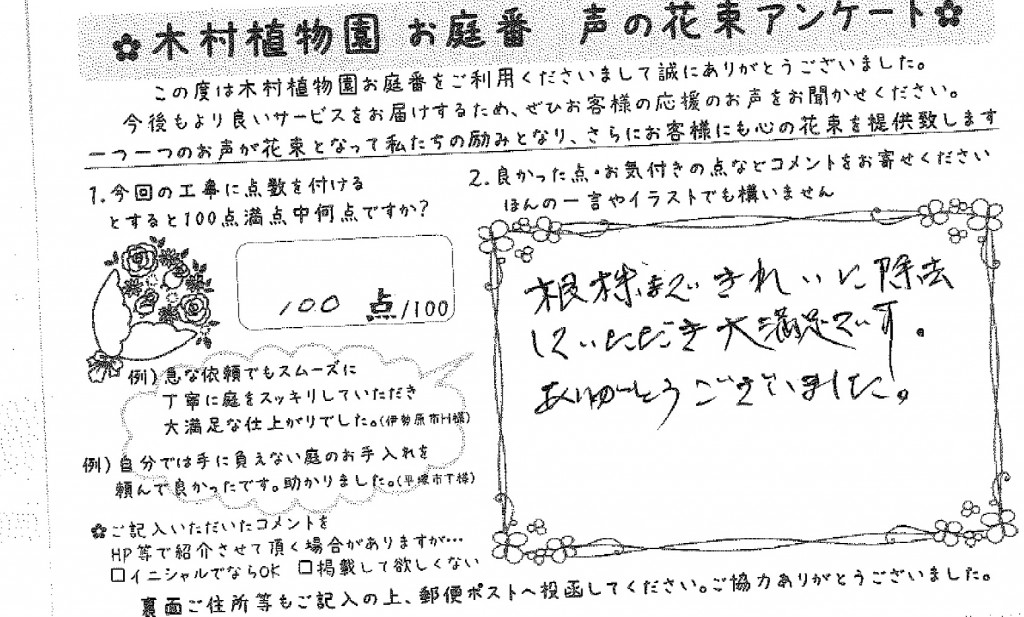 ✿木村植物園 お庭番 声の花束アンケート✿
この度は木村植物園お庭番をご利用くださいまして誠にありがとうございました。
今後もより良いサービスをお届けするため、ぜひお客様の応援のお声をお聞かせください。
一つ一つのお声が花束となって私たちの励みとなり、さらにお客様にも心の花束を提供致します
1.今回の工事に点数を付ける
とすると100点満点中何点ですか?
100 点/100
例)急な依頼でもスムーズに
丁寧に庭をスッキリしていただき
大満足な仕上がりでした。(伊勢原市H様)
例)自分では手に負えない庭のお手入れを
頼んで良かったです。助かりました。(平塚市T様)
✿ご記入いただいたコメントを
HP等で紹介させて頂く場合がありますが…
□イニシャルでならOK □掲載して欲しくない
2.良かった点・お気付きの点などコメントをお寄せください
ほんの一言やイラストでも構いません
根株まできれいに除去
していただき大満足です。
ありがとうございました。
裏面ご住所等もご記入の上、郵便ポストへ投函してください。ご協力ありがとうございました。